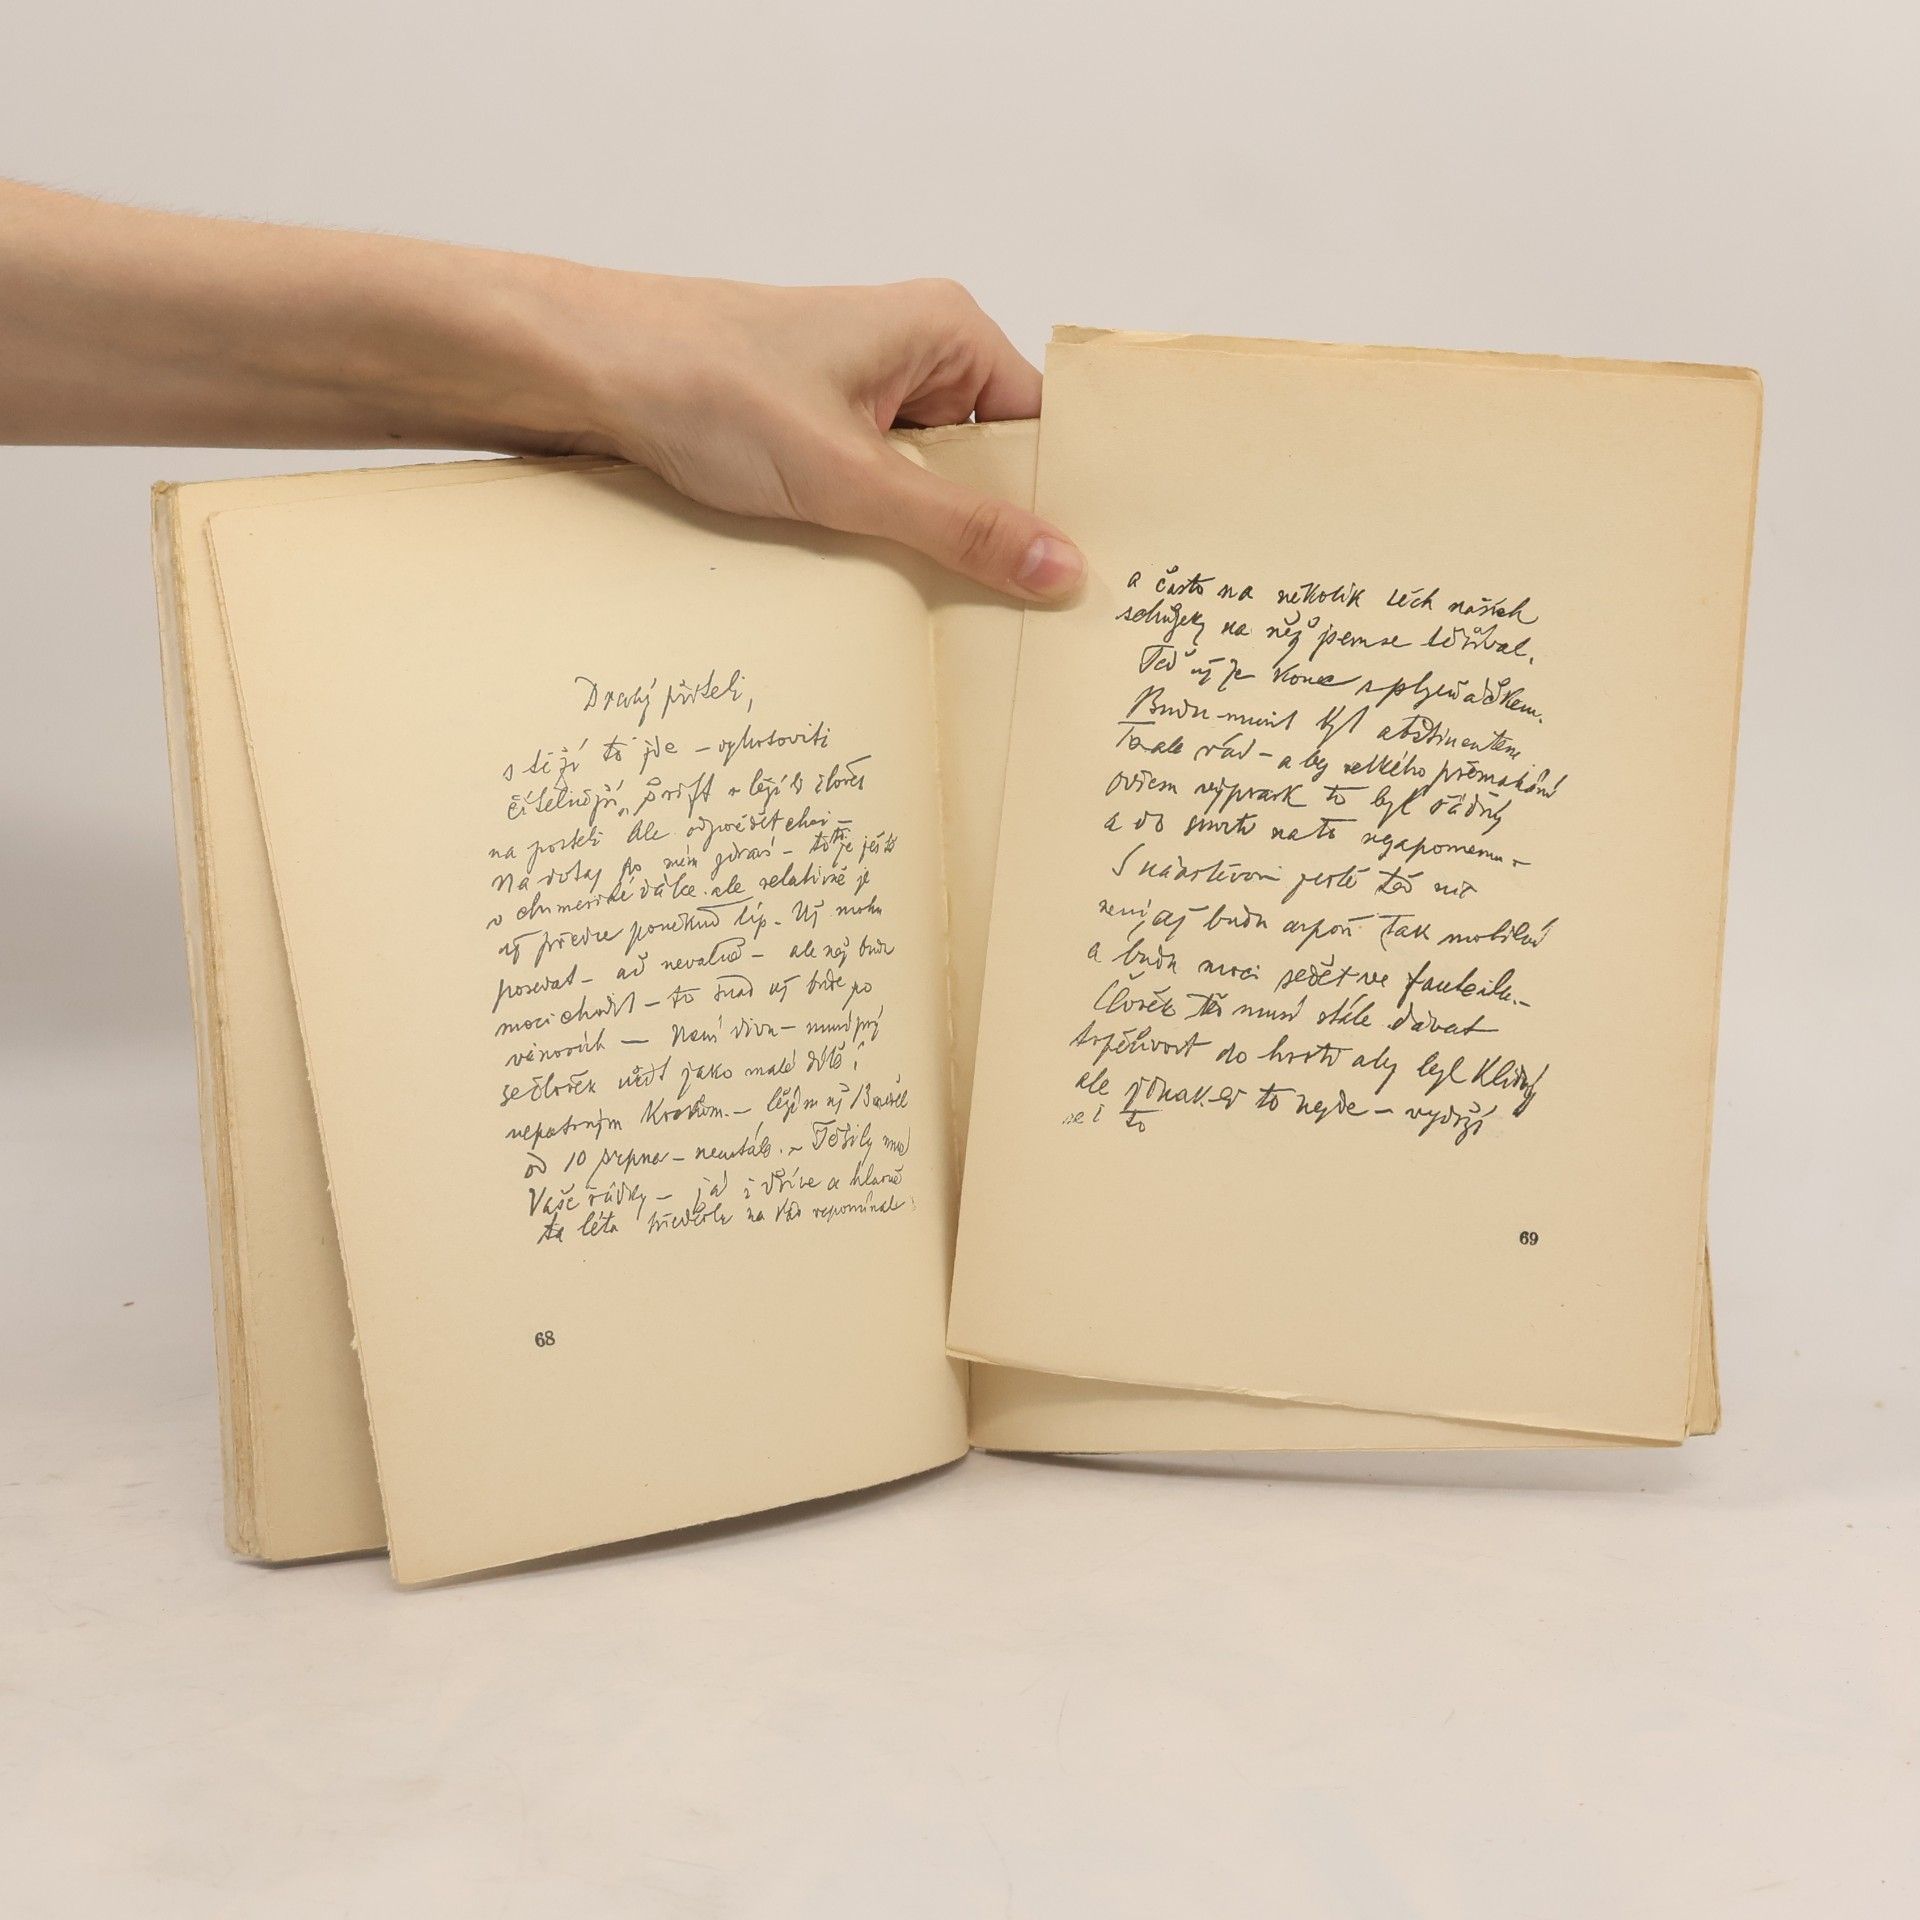 Drahý příteli,
s tíží to jde – vyhotoviti
čitelnější „šrift
na posteli Ale odpovědět chci –
Na dotaz po mém zdraví – to je ještě
v chimerické dálce. ale relativně je
už přece poněkud líp. Už mohu
posedat – ač nevalně – ale než budu
moci chodit – to snad už bude po
vánocích – Není divu – musí prý
se člověk učit jako malé dítě i
nepatrným krokům. – ležím už 13 neděl
od 10 srpna – neustále. – Těšily mne
Vaše řádky – já i dříve a hlavně
ta léta na Vás vzpomínal
a často na několik těch našich
schůzek na něž jsem se těšíval.
Teď už je konec s plzeňáčkem.
Budu muset být abstinentem
To ale rád – a bez velkého přemáhání
ovšem výprask to byl řádný
a do smrti na to nezapomenu –
S návštěvami ještě teď nic
není, až budu aspoň tak mobilní
a budu moci sedět ve fauteilu. –
Člověk teď musí stále dávat
trpělivost do hrsti aby byl klidný
ale jinak to nejde – vydrží
se i to
68
69